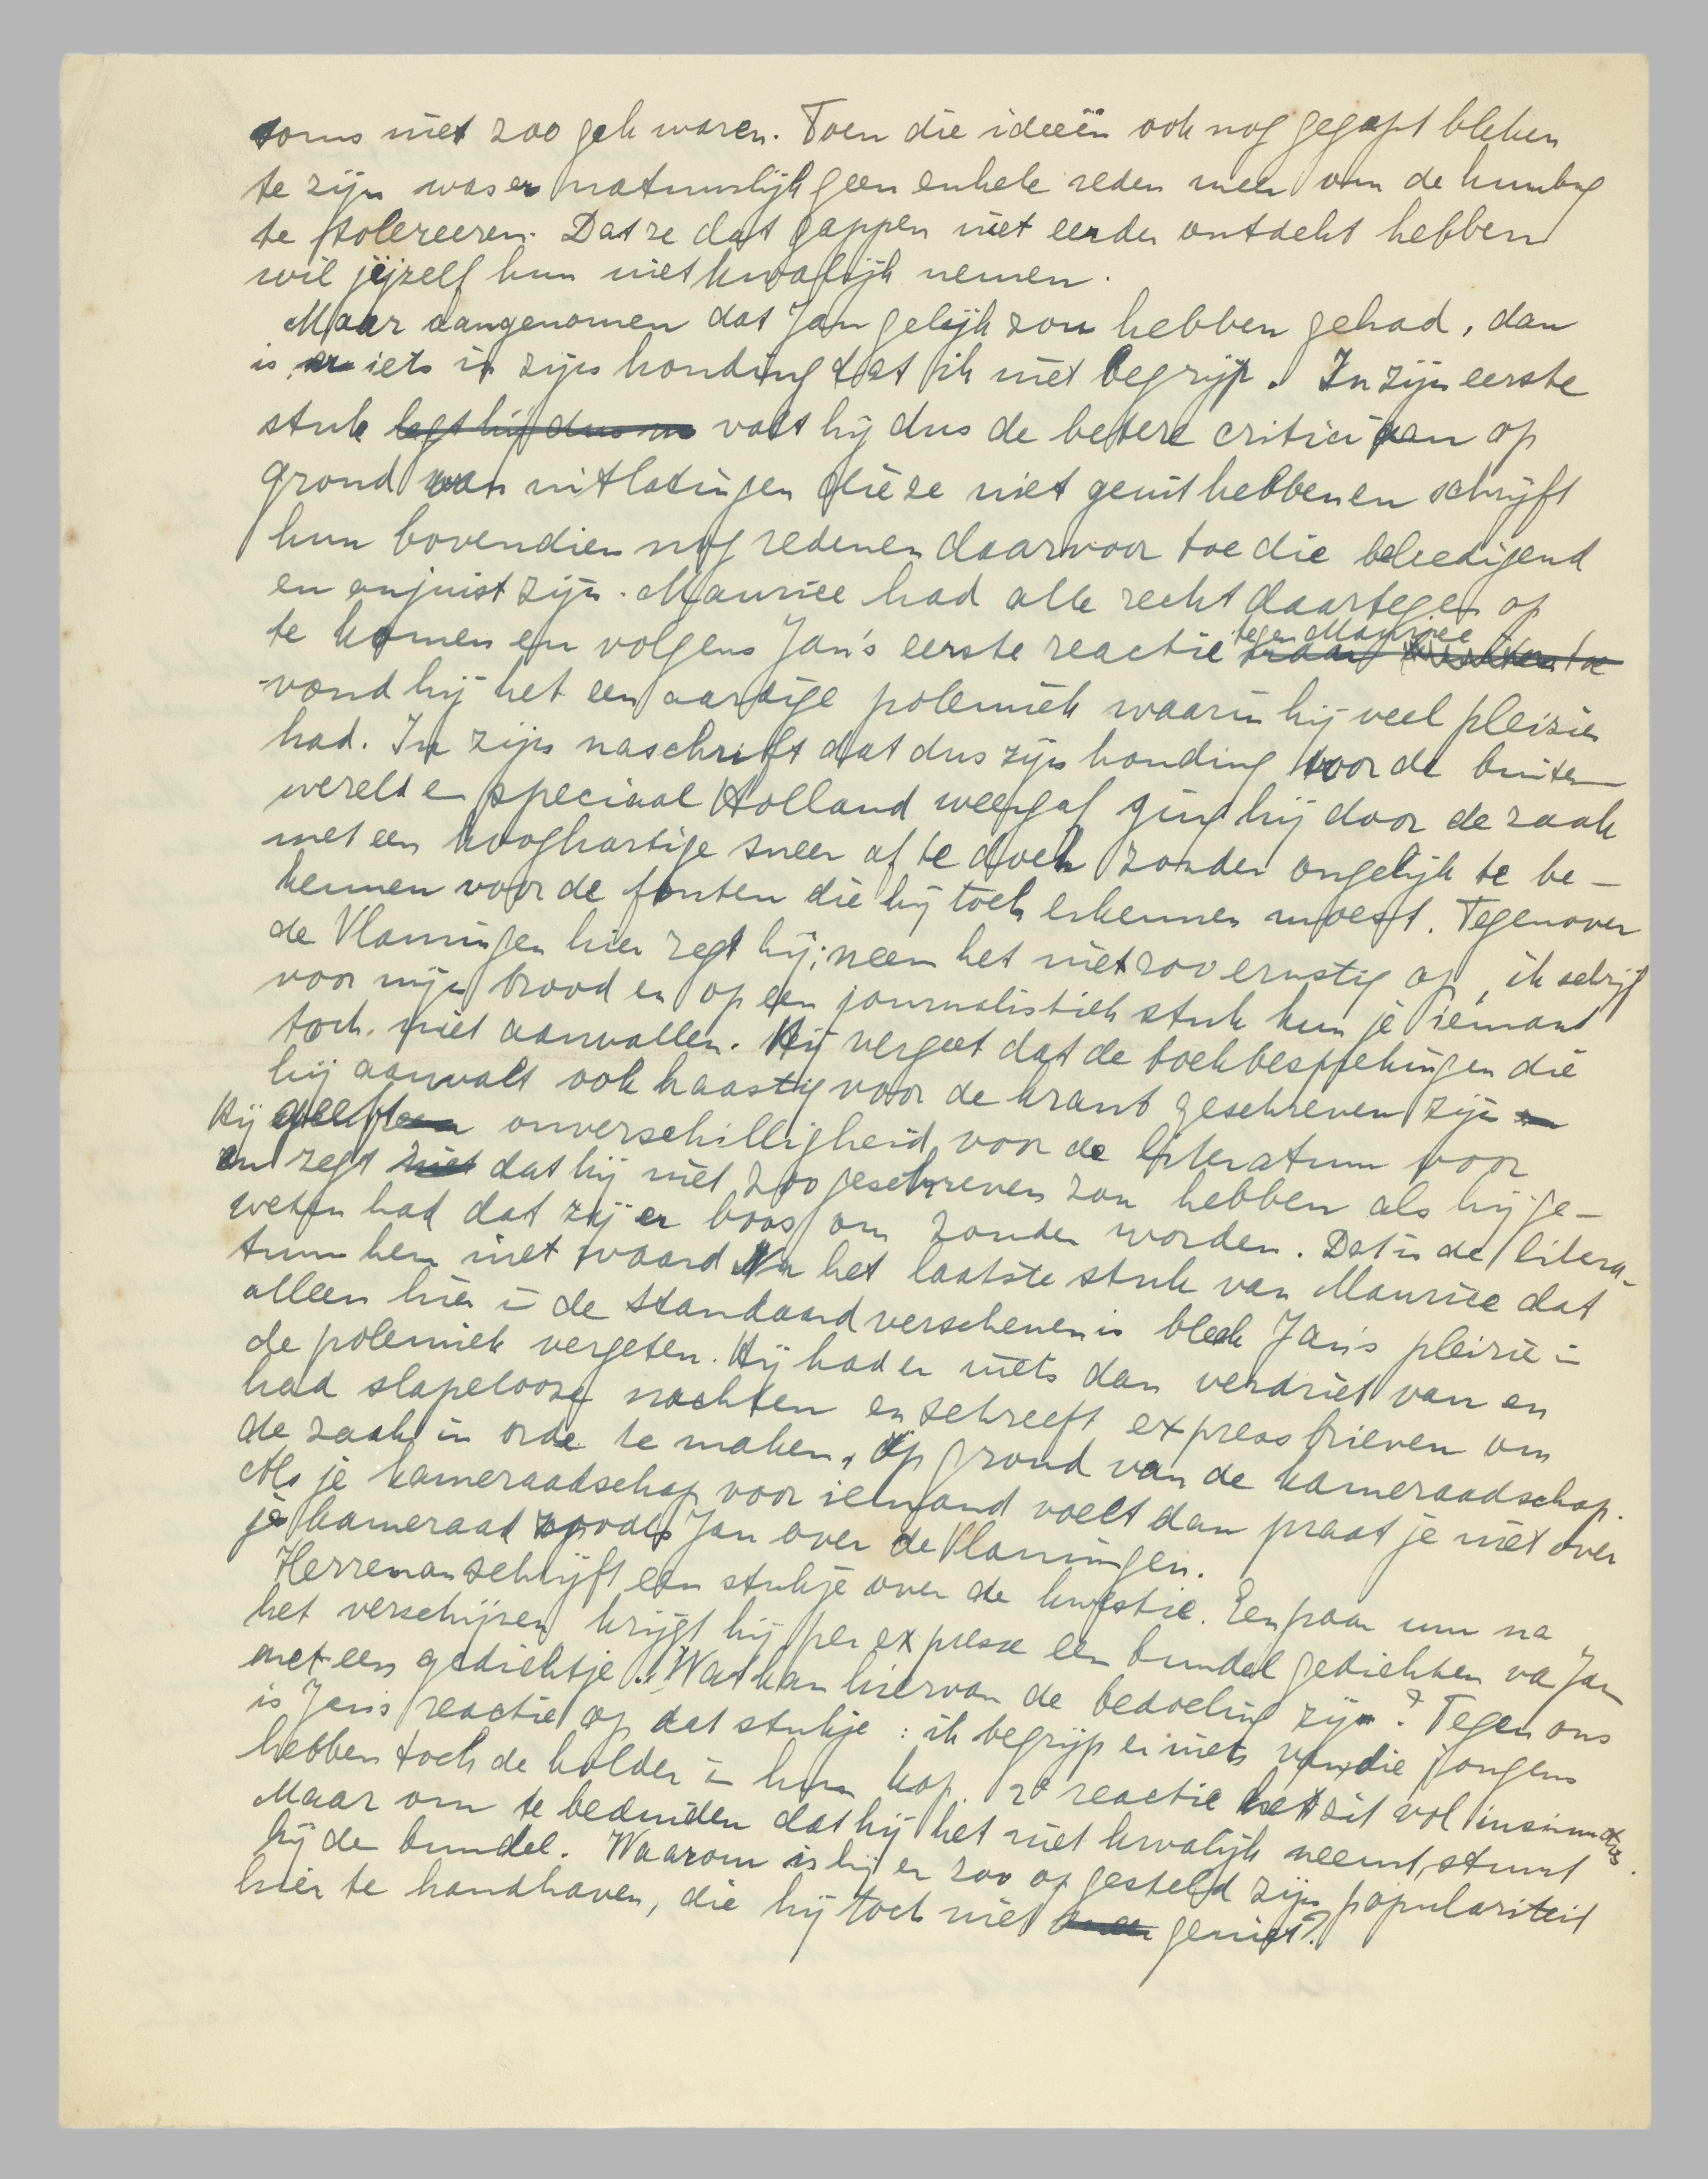 soms niet zoo gek waren. Toen die ideeën ook nog gegapt bleken
te zijn was er natuurlijk geen enkele reden meer om de humbug
te tolereeren. Dat ze dat gappen niet eerder ontdekt hebben
wil jijzelf hun niet kwalijk nemen.
Maar aangenomen dat Jan gelijk zou hebben gehad, dan
is er iets in zijn houding dat ik niet begrijp. In zijn eerste
stuk legt hij dus valt hij dus de betere critici aan op
grond van uitlatingen die ze niet geuit hebben en schrijft
hun bovendien nog redenen daarvoor toe die beleedigend
en onjuist zijn. Maurice had alle recht daartegen op
te komen en volgens Jan's eerste reactie tegen Maurice
vond hij het een aardige polemiek waarin hij veel pleizier
had. In zijn naschrift dat dus zijn houding voor de buiten
wereld en speciaal Holland weergaf ging hij door de zaak
met een hooghartige sneer af te doen zonder ongelijk te be-
kennen voor de fouten die hij toch erkennen moest. Tegenover
de Vlamingen hier zegt hij: neem het niet zoo ernstig op, ik schrijf
voor mijn brood en op een journalistiek stuk kun je iemand
toch niet aanvallen. Hij vergeet dat de boekbesprekingen die
hij aanvalt ook haastig voor de krant geschreven zijn
Hij geeft een onverschilligheid voor de literatuur voor
en zegt niet dat hij niet zoo geschreven zou hebben als hij ge-
weten had dat zij er boos om zouden worden. Dat is de litera-
tuur hem niet waard. Na het laatste stuk van Maurice dat
alleen hier in de Standaard verschenen is bleek Jan's pleizier in
de polemiek vergeten. Hij had er niets dan verdriet van en
had slapelooze nachten en schreeft expresbrieven om
de zaak in orde te maken, op grond van de kameraadschap.
Als je kameraadschap voor iemand voelt dan praat je niet over
je kameraad zooals Jan over de Vlamingen.
Herreman schrijft een stukje over de kwestie. Een paar uur na
het verschijnen krijgt hij per expresse een bundel gedichten va Jan
met een gedichtje. Wat kan hiervan de bedoeling zijn? Tegen ons
is Jan's reactie op dat stukje: ik begrijp er niets van, die jongens
hebben toch de kolder in hun kop. 2e reactie het zit vol insinuaties.
Maar om te beduiden dat hij het niet kwalijk neemt, stuurt
hij de bundel. Waarom is hij er zoo op gesteld zijn populariteit
hier te handhaven, die hij toch niet geniet?